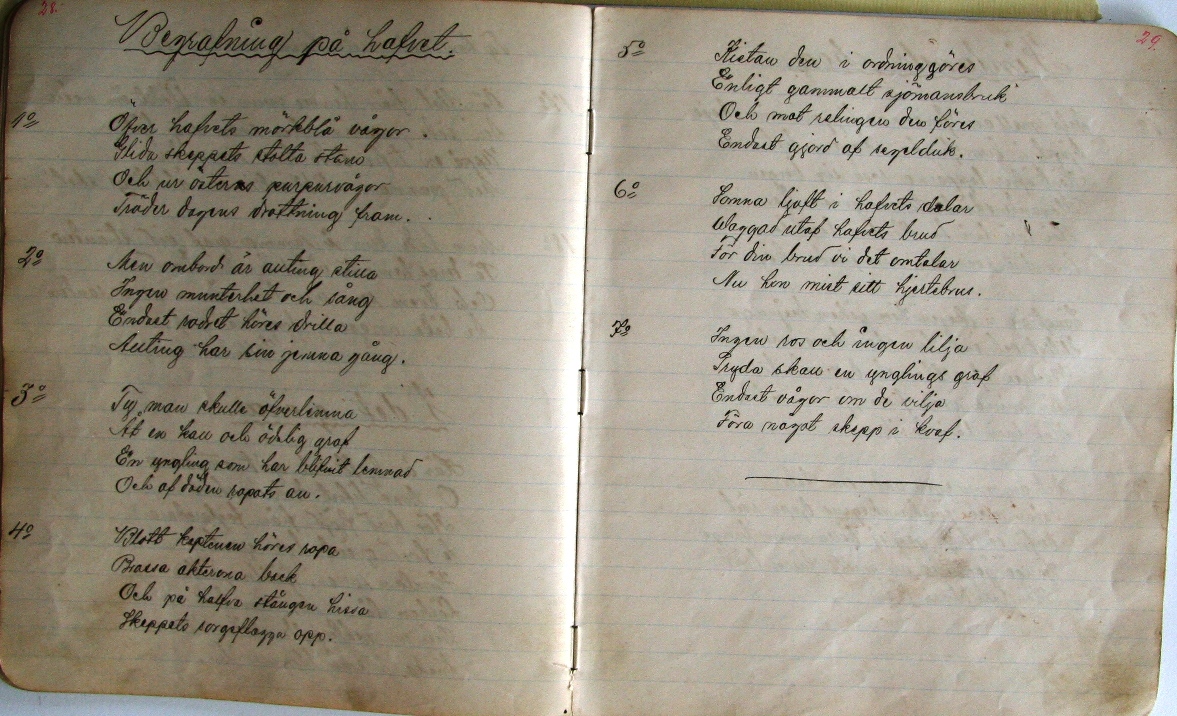 28.
Begrafning på hafvet.
1º
Öfver hafvets mörkblå vågor.
Glida skeppets stolta stam
Och ur österns purpurvågor
Träder dagens drottning fram.
2º
Men ombord är anting stilla
Ingen munterhet och sång
Endast rodret höres drilla
Anting har sin jemna gång.
3º
Ty man skulle öfverlemna
Åt en kall och ödslig graf
En yngling som har blifvit lemnad
Och af döden ropats an.
4º
Blott keptenen höres ropa
Brassa akterora back
Och på halfva stången hissa
Skeppets sorgeflagga opp.
29.
5º
Kistan den i ordning göres
Enligt gammalt sjömansbruk
Och mot relingen den föres
Endast gjord af segelduk.
6º
Somna ljuft i hafvets salar
Waggad utaf hafvets brud
För din brud vi det omtalar
Nu hon mist sitt hjertebrus.
7º
Ingen ros och ingen lilja
Pryda skall en ynglings graf
Endast vågor om de vilja
Föra något skepp i kvaf.